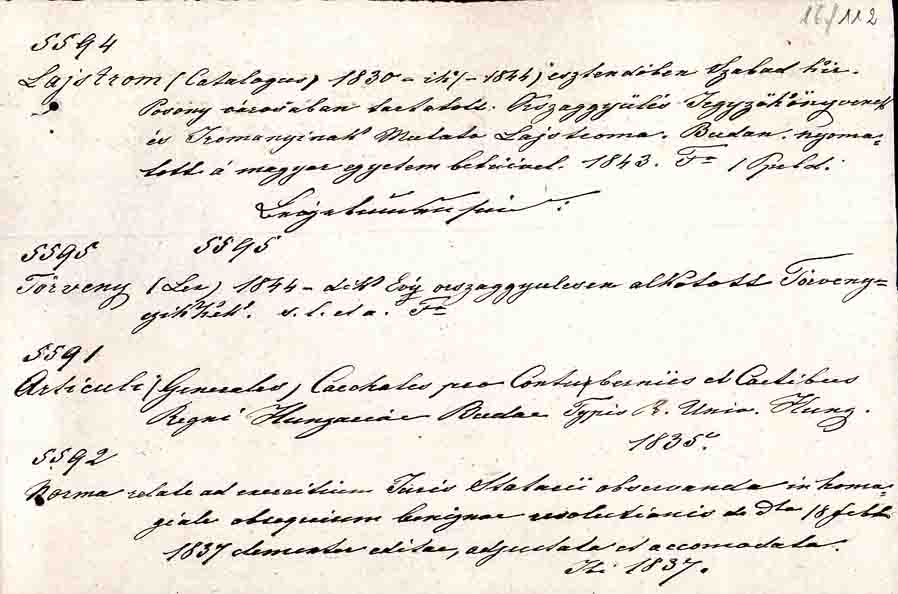 16/112
5594
Lajstrom (Catalogus) 1830 - iki - 1844) esztendőben Szabad kir.
Posony városában tartatott Országgyűlés Jegyzőkönyvenek
és Iromanyinak Mutato Lajstroma. Budan. nyoma-
tott á magyar egyetem betűivel. 1843. F° 1 peld:
5595 5595
Törveny (Lex) 1844 - diki Évy országgyulesen alkotott Törveny=
czikkek. s. l. et a. F°
5591
Articuli (Generales) Caehales pro Contuberniis et Caetibus
Regni Hungariae Budae Typis R. Univ. Hung.
1835.
5592
Norma relate ad exercitium Juris Statarii observanda in homa-
giale obsequium benignae resolutionis de dto 18 febr
1837 clementer editae, adjustata et accomodata.
Ibi 1837.